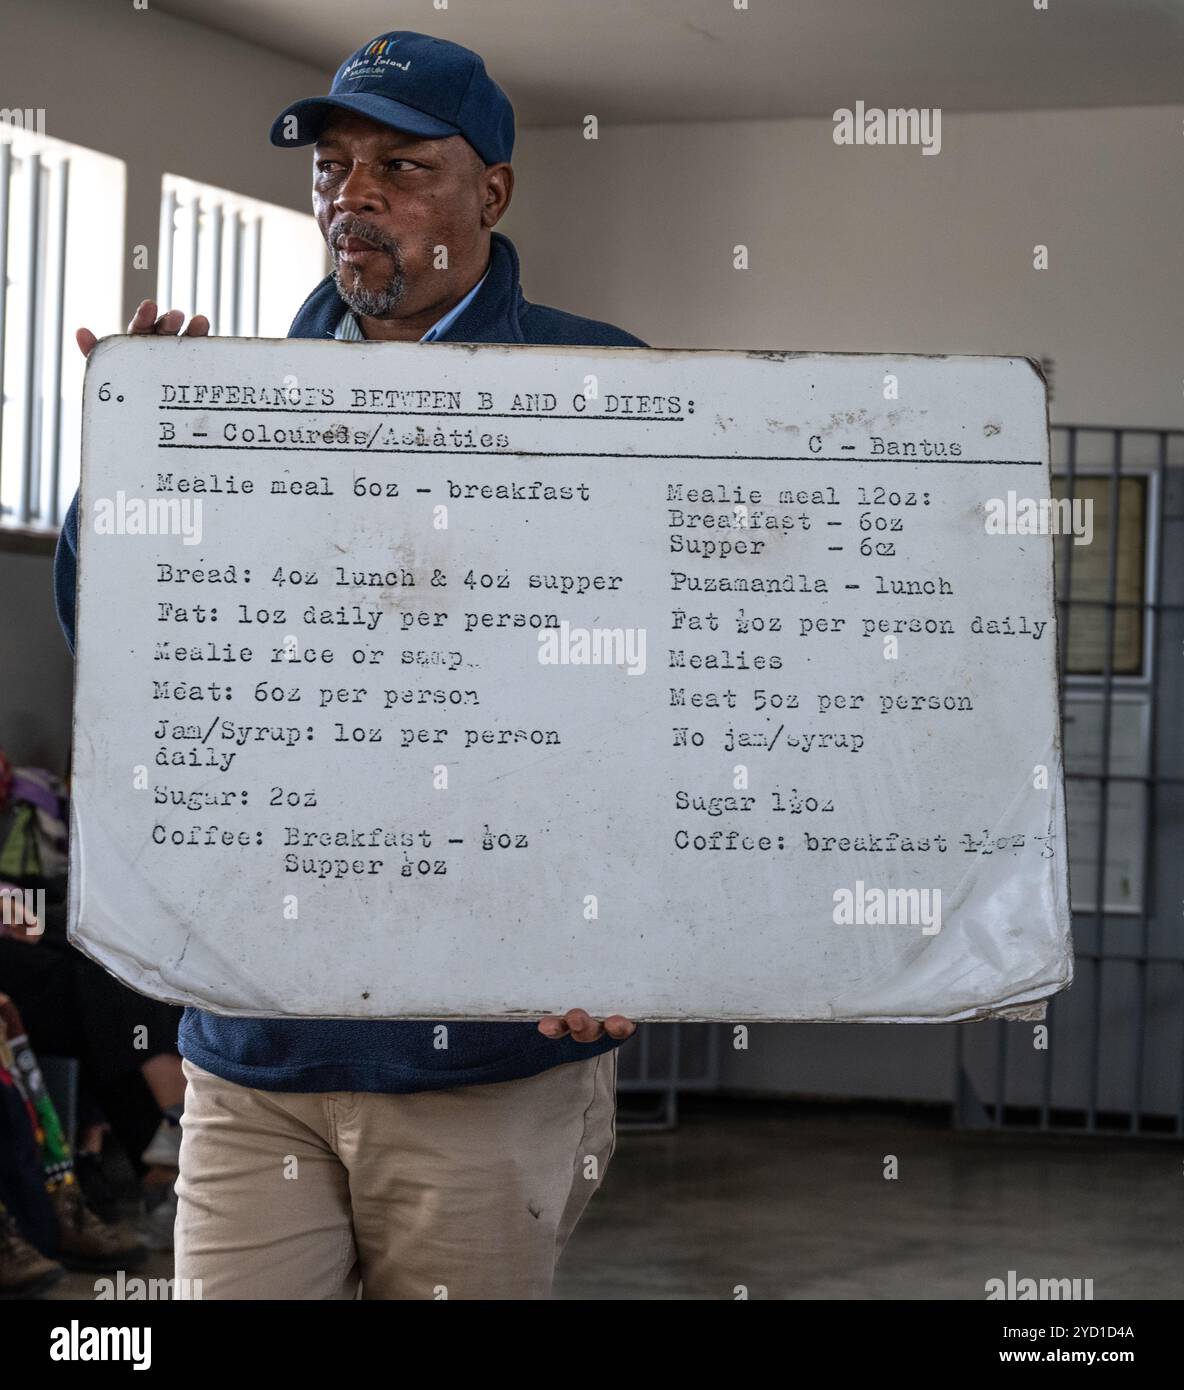 Robben Island
MUSEUM
6. DIFFERANCES BETWEEN B AND C DIETS:
B - Coloureds/Asiaties
C - Bantus
Mealie meal 6oz - breakfast
Mealie meal 12oz:
Breakfast - 6oz
Supper - 6oz
Bread: 4oz lunch & 4oz supper
Puzamandla - lunch
Fat: 1oz daily per person
Fat ½oz per person daily
Mealie rice or samp
Mealies
Meat: 6oz per person
Meat 5oz per person
Jam/Syrup: 1oz per person
daily
No jam/syrup
Sugar: 2oz
Sugar 1½oz
Coffee: Breakfast - ⅛oz
Supper ⅛oz
Coffee: breakfast
alamy
alamy
alamy
alamy
alamy
alamy
alamy
Image ID: 2YD1D4A
www.alamy.com